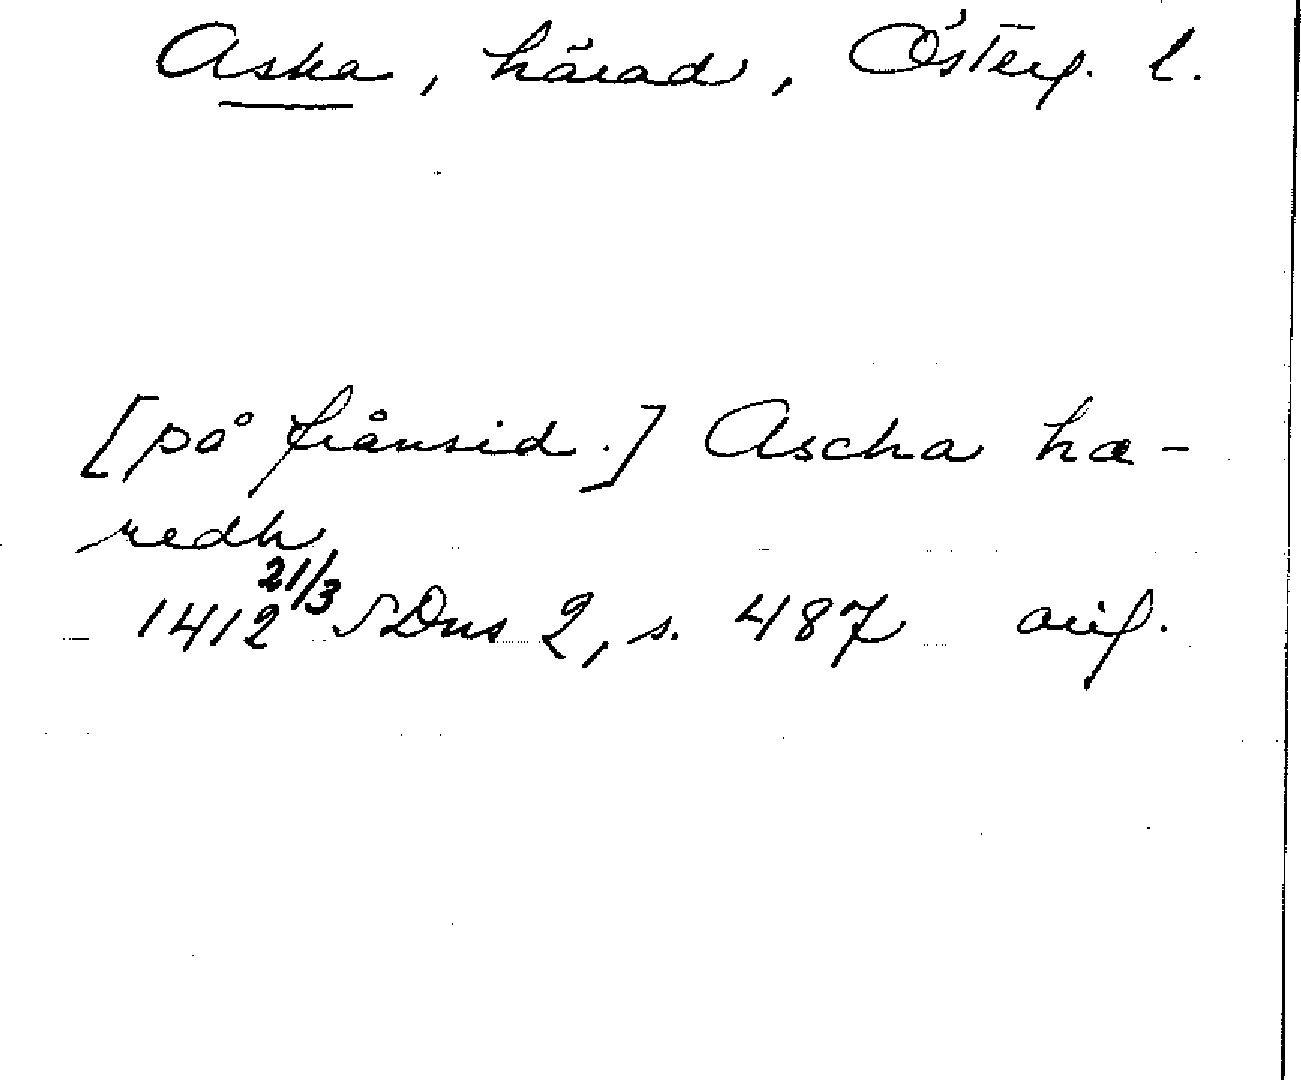 Aska, härad, Österg. l.
[på frånsid.] Ascha hæ-
redh
1412 21/3 SDns 2, s. 487 avs.